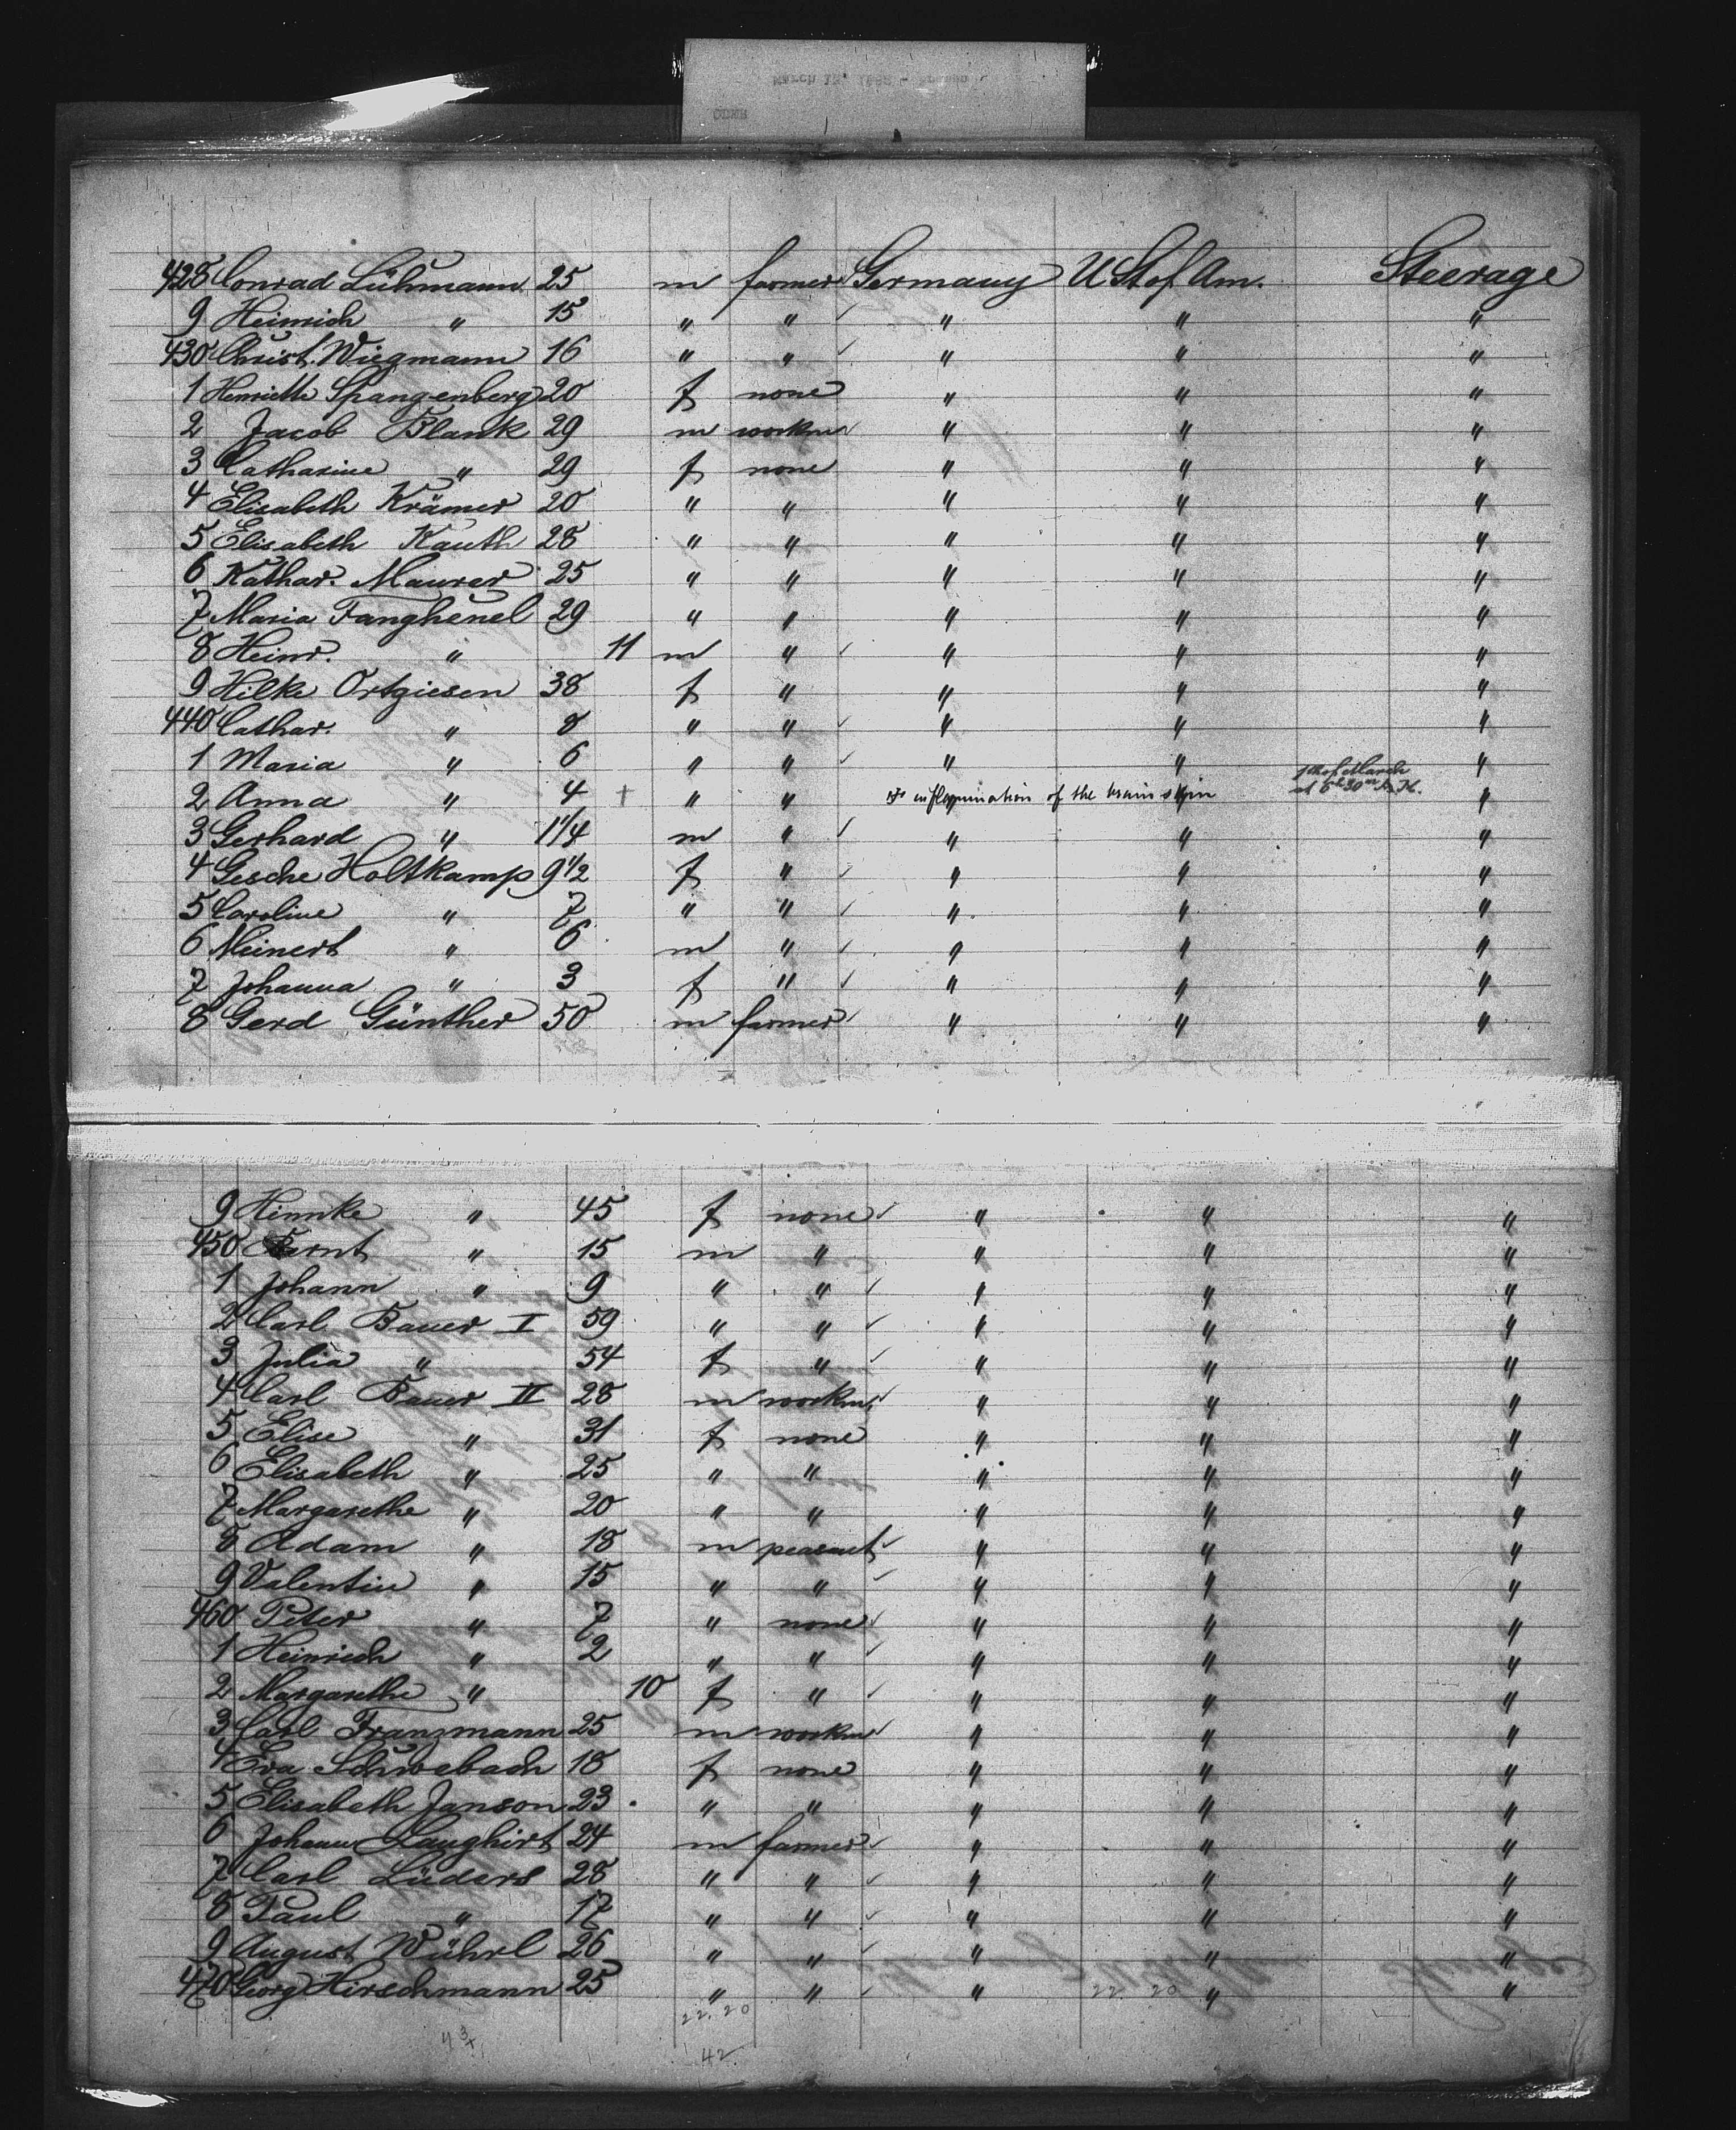 428 Conrad Lühmann 25 m farmer Germany U St of Am. Steerage
9 Heinrich " 15 " " " " "
430 Christ. Wiegmann 16 " " " " "
1 Henriette Spangenberg 20 f none " " "
2 Jacob Blank 29 m workm " " "
3 Catharine " 29 f none " " "
4 Elisabeth Krämer 20 " " " " "
5 Elisabeth Kauth 28 " " " " "
6 Kathar. Maurer 25 " " " " "
7 Maria Fanghenel 29 " " " " "
8 Heinr. " 11 m " " " "
9 Hilke Ortgiesen 38 f " " " "
440 Cathar. " 8 " " " " "
1 Maria " 6 " " " " "
2 Anna " 4 + " " inflammination of the brain skin of March at 30 "
3 Gerhard " 1 1/4 m " " " "
4 Gesche Holtkamp 9 1/2 f " " " "
5 Caroline " 7 " " " " "
6 Meinert " 6 m " " " "
7 Johanna " 3 f " " " "
8 Gerd Günther 50 m farmer " " "
9 Hinnke " 45 f none " " "
450 Bernt " 15 m " " " "
1 Johann " 9 " " " " "
2 Carl Bauer I 59 " " " " "
3 Julia " 54 f " " " "
4 Carl Bauer II 28 m workm " " "
5 Elise " 31 f none " " "
6 Elisabeth " 25 " " " " "
7 Margarethe " 20 " " " " "
8 Adam " 18 m peasant " " "
9 Valentin " 15 " " " " "
460 Peter " 7 " none " " "
1 Heinrich " 2 " " " " "
2 Margarethe " 10 f " " " "
3 Carl Franzmann 25 m workm " " "
4 Eva Schwebach 18 f none " " "
5 Elisabeth Janson 23 " " " " "
6 Johann Laughirt 24 m farmer " " "
7 Carl Lüders 28 " " " " "
8 Paul " 17 " " " " "
9 August Wührl 26 " " " " "
470 Georg Hirschmann 25 " " " " "
22. 20 22. 20
42